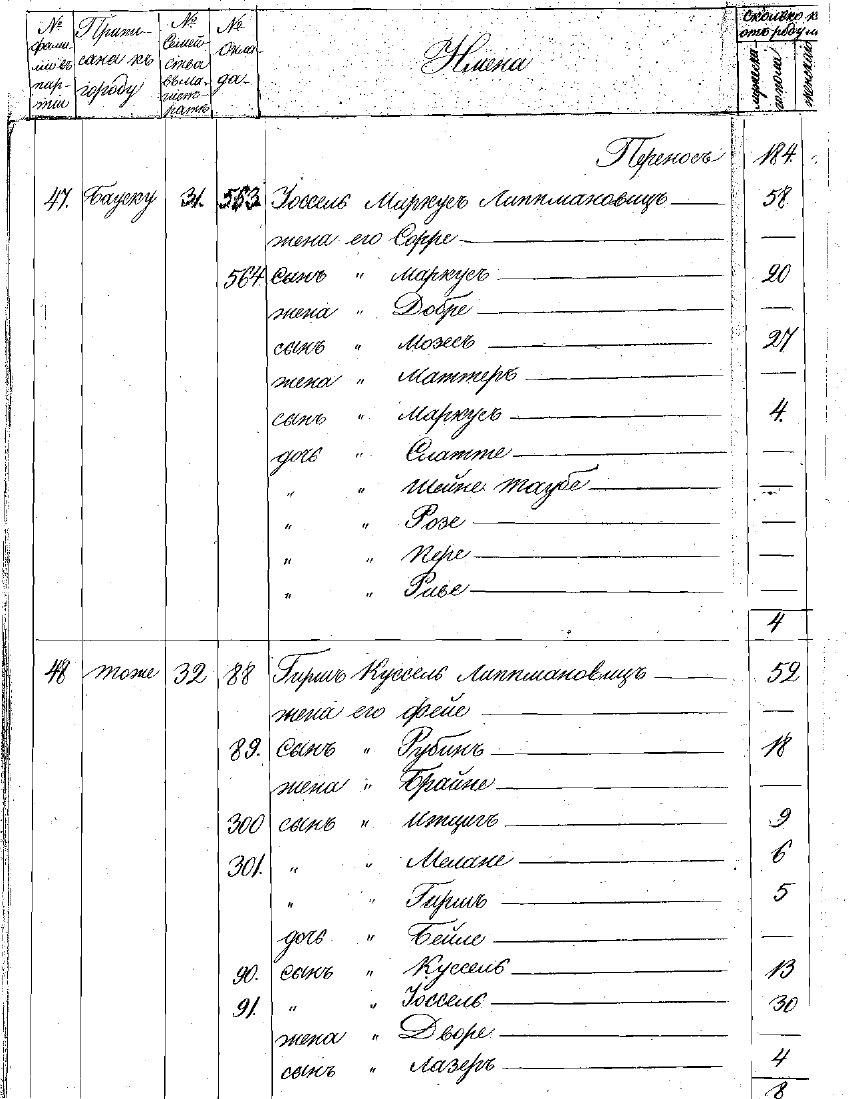 № фамиліевъ партіи | Приписанъ къ городу | № Семейства въ магистратѣ | № Оклада | Имена | Сколько к отъ роду
мужеска пола | женска
Переносъ 184.
47. Бауску 31. 563 Іоссель Маркусъ Липпмановицъ — 58
жена его Сорре —
564 сынъ " Маркусъ — 20
жена " Добре —
сынъ " Мозесъ — 27
жена " Маттеръ —
сынъ " Маркусъ — 4.
дочь " Слатте —
" " Шейне Таубе —
" " Розе —
" " Пере —
" " Риве —
4
48 тоже 32 88 Гиршъ Куссель Липпмановицъ — 52
жена его Фейе —
89. сынъ " Рубинъ — 18
жена " Брайне —
300 сынъ " Итцигъ — 9
301. " " Мелане — 6
" " Гиршъ — 5
дочь " Бейле —
90. сынъ " Куссель — 13
91. " " Іоссель — 30
жена " Дворе —
сынъ " Лазеръ — 4
8